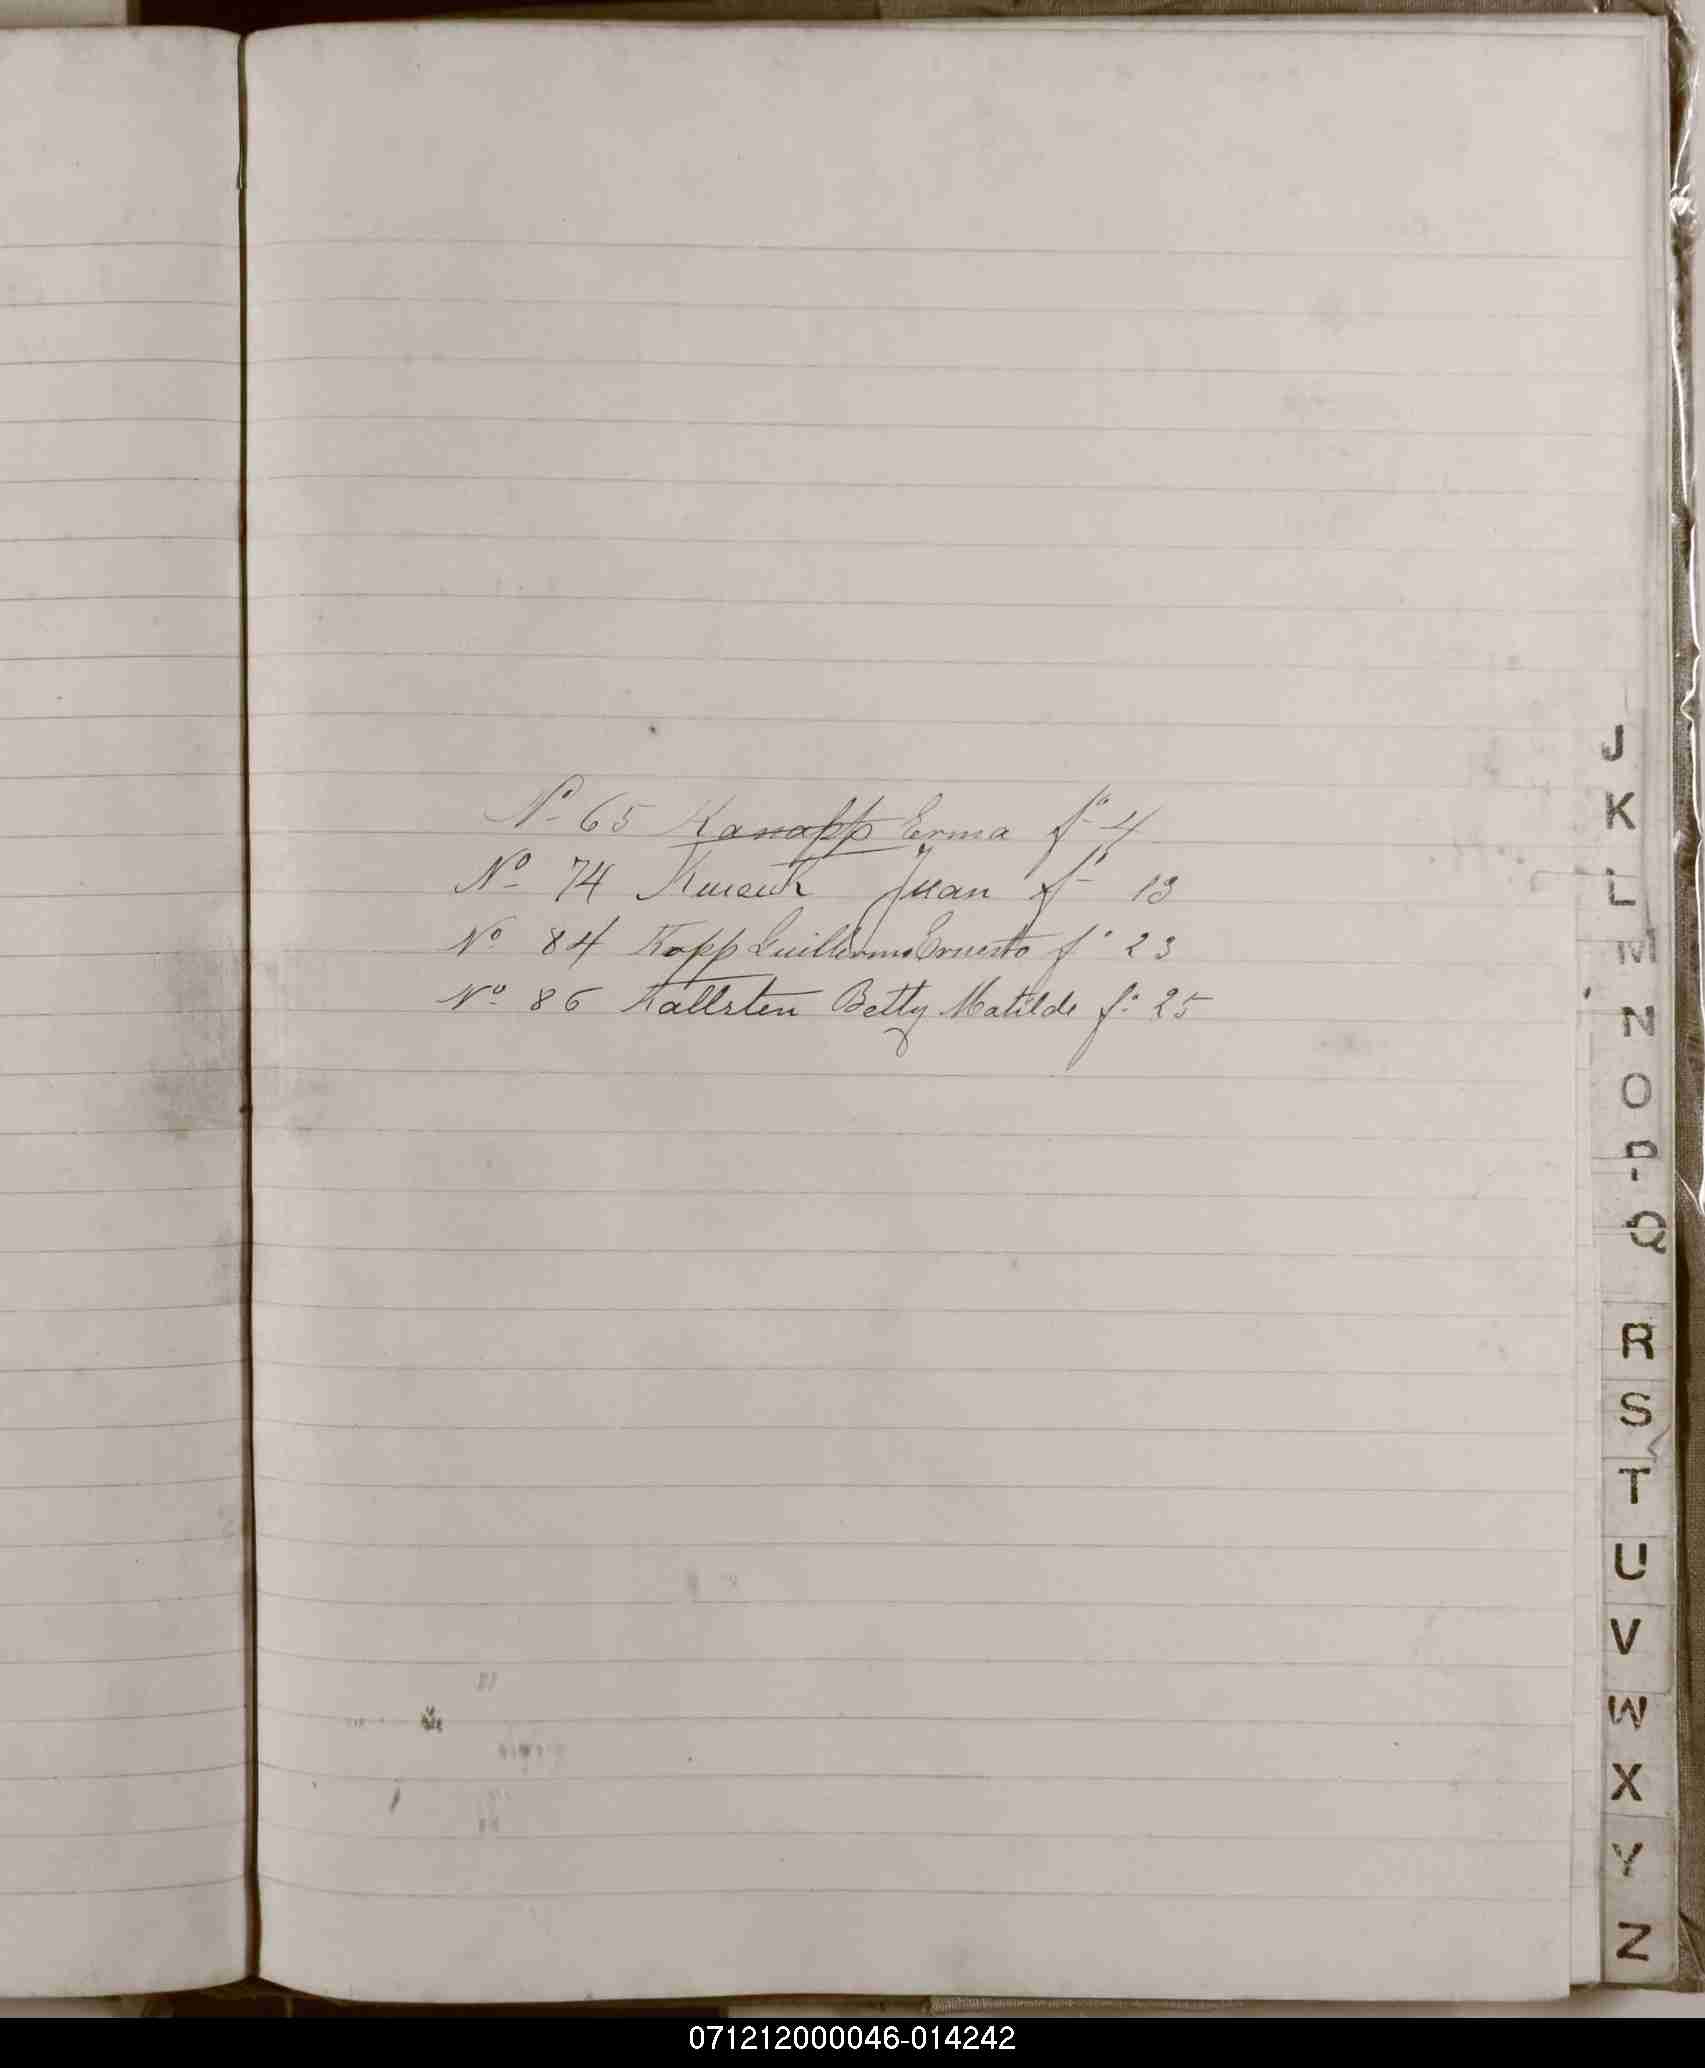 Nº 65 Kanapp Erma fº 4
Nº 74 Juan fº 13
Nº 84 Kopp Guillermo Ernesto fº 23
Nº 86 Kallsten Betty Matilde fº 25
J
K
L
M
N
O
P
Q
R
S
T
U
V
W
X
Y
Z
071212000046-014242